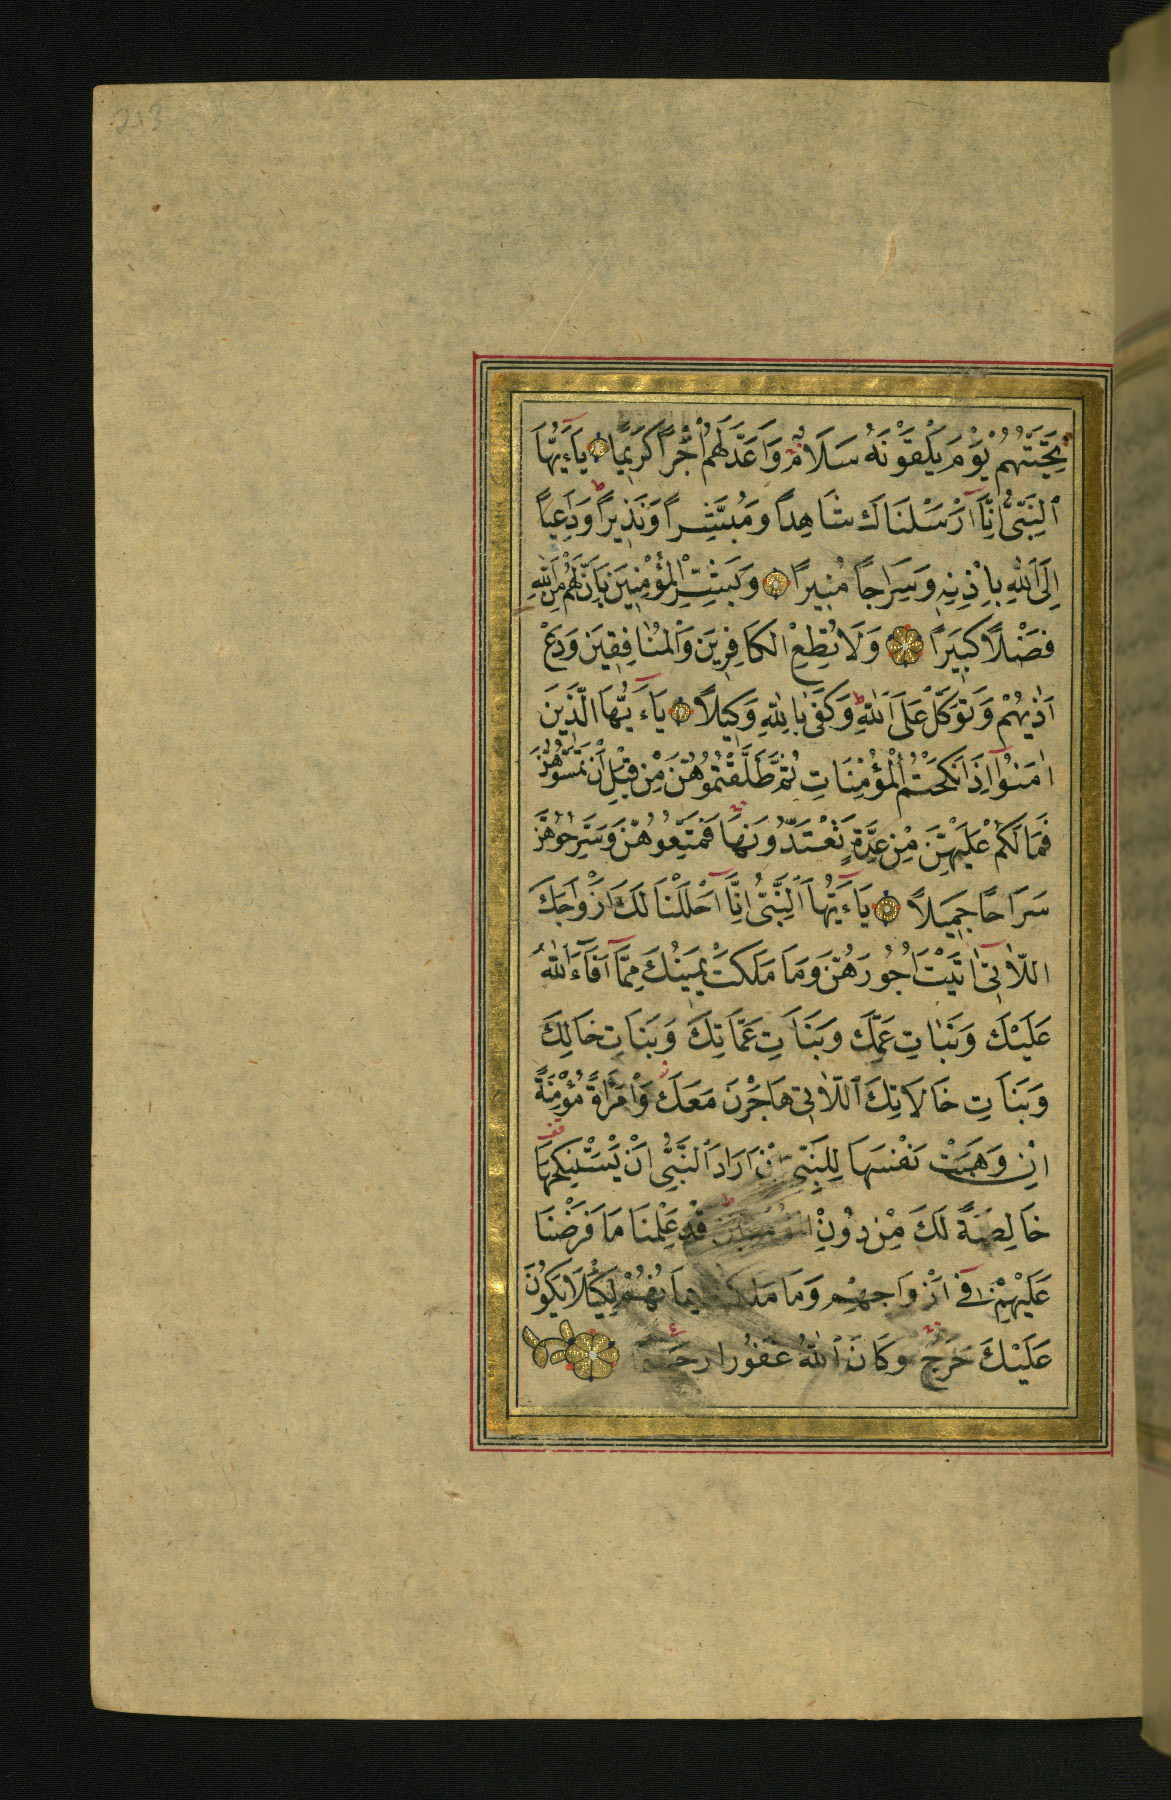 تَحِيَّتُهُمْ يَوْمَ يَلْقَوْنَهُ سَلَامٌ وَاَعَدَّ لَهُمْ اَجْرًا كَرِيمًا يَاۤءَيُّهَا
ٱلنَّبِىُّ اِنَّاۤ اَرْسَلْنَاكَ شَاهِدًا وَمُبَشِّرًا وَنَذِيرًا وَدَاعِيًا
اِلَى ٱللّٰهِ بِاِذْنِهٖ وَسِرَاجًا مُنِيرًا وَبَشِّرِ ٱلْمُؤْمِنِينَ بِاَنَّ لَهُمْ مِنَ ٱللّٰهِ
فَضْلًا كَبِيرًا وَلَا تُطِعِ الْكَافِرِينَ وَٱلْمُنَافِقِينَ وَدَعْ
اَذٰيهُمْ وَتَوَكَّلْ عَلَى ٱللّٰهِ وَكَفَى بِاللّٰهِ وَكِيلًا يَاۤءَيُّهَا الَّذِينَ
اٰمَنُوۤا اِذَا نَكَحْتُمُ ٱلْمُؤْمِنَاتِ ثُمَّ طَلَّقْتُمُوهُنَّ مِنْ قَبْلِ اَنْ تَمَسُّوهُنَّ
فَمَا لَكُمْ عَلَيْهِنَّ مِنْ عِدَّةٍ تَعْتَدُّونَهَا فَمَتِّعُوهُنَّ وَسَرِّحُوهُنَّ
سَرَاحًا جَمِيلًا يَاۤءَيُّهَا ٱلنَّبِىُّ اِنَّاۤ اَحْلَلْنَا لَكَ اَزْوَاجَكَ
اللّٰاتِىۤ اٰتَيْتَ اُجُورَهُنَّ وَمَا مَلَكَتْ يَمِينُكَ مِمَّاۤ اَفَاۤءَ ٱللّٰهُ
عَلَيْكَ وَبَنَاتِ عَمِّكَ وَبَنَاتِ عَمَّاتِكَ وَبَنَاتِ خَالِكَ
وَبَنَاتِ خَالَاتِكَ ٱللّٰاتِى هَاجَرْنَ مَعَكَ وَٱمْرَاَةً مُؤْمِنَةً
اِنْ وَهَبَتْ نَفْسَهَا لِلنَّبِىِّ اِنْ اَرَادَ ٱلنَّبِىُّ اَنْ يَسْتَنْكِحَهَا
خَالِصَةً لَكَ مِنْ دُونِ ٱلْمُؤْمِنِينَ قَدْ عَلِمْنَا مَا فَرَضْنَا
عَلَيْهِمْ فِىۤ اَزْوَاجِهِمْ وَمَا مَلَكَتْ اَيْمَانُهُمْ لِكَيْلَا يَكُونَ
عَلَيْكَ حَرَجٌ وَكَانَ ٱللّٰهُ غَفُورًا